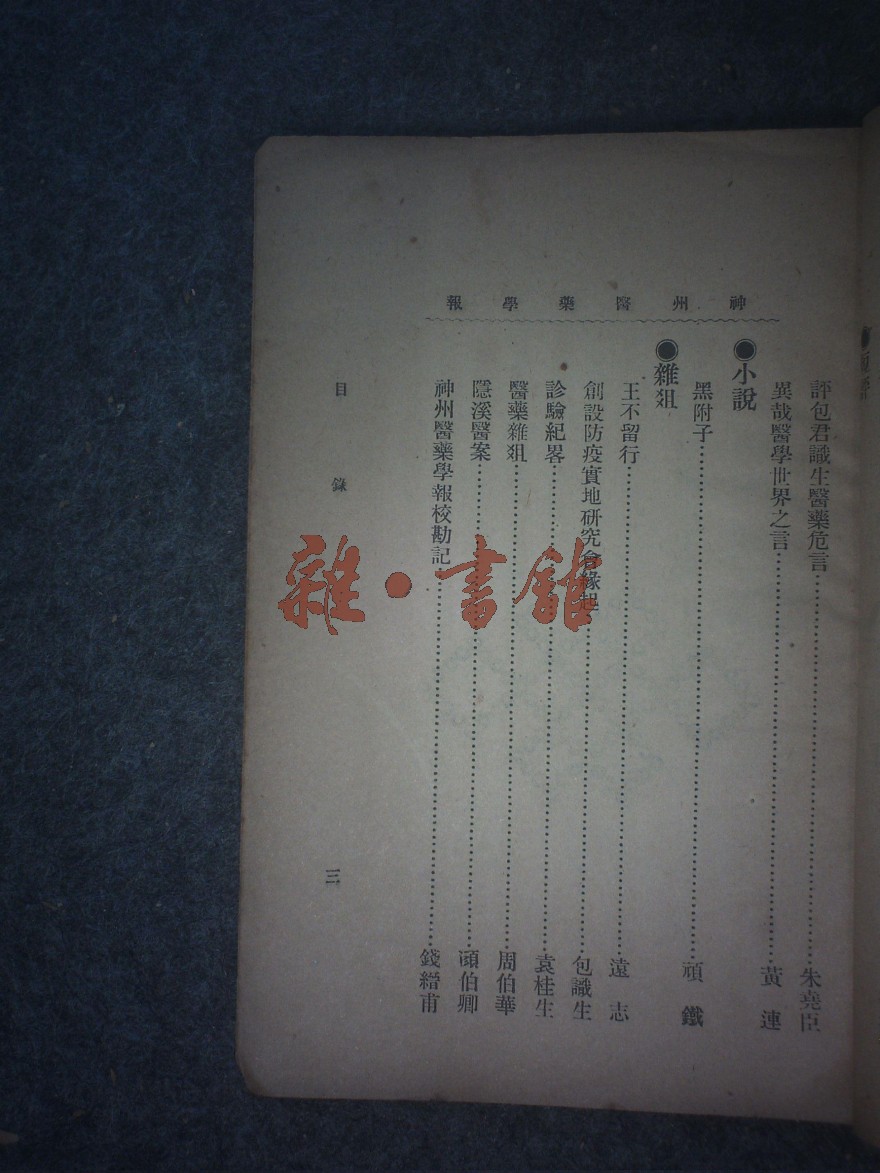 神州醫藥學報
評包君識生醫藥危言 朱堯臣
異哉醫學世界之言 黃連
●小說
黑附子 頑鐵
●雜俎
王不留行 遠志
創設防疫實地研究會緣起 包識生
診驗紀畧 袁桂生
醫藥雜俎 周伯華
隱溪醫案 伯卿
神州醫藥學報校勘記 錢縉甫
目錄
三
雜·書館